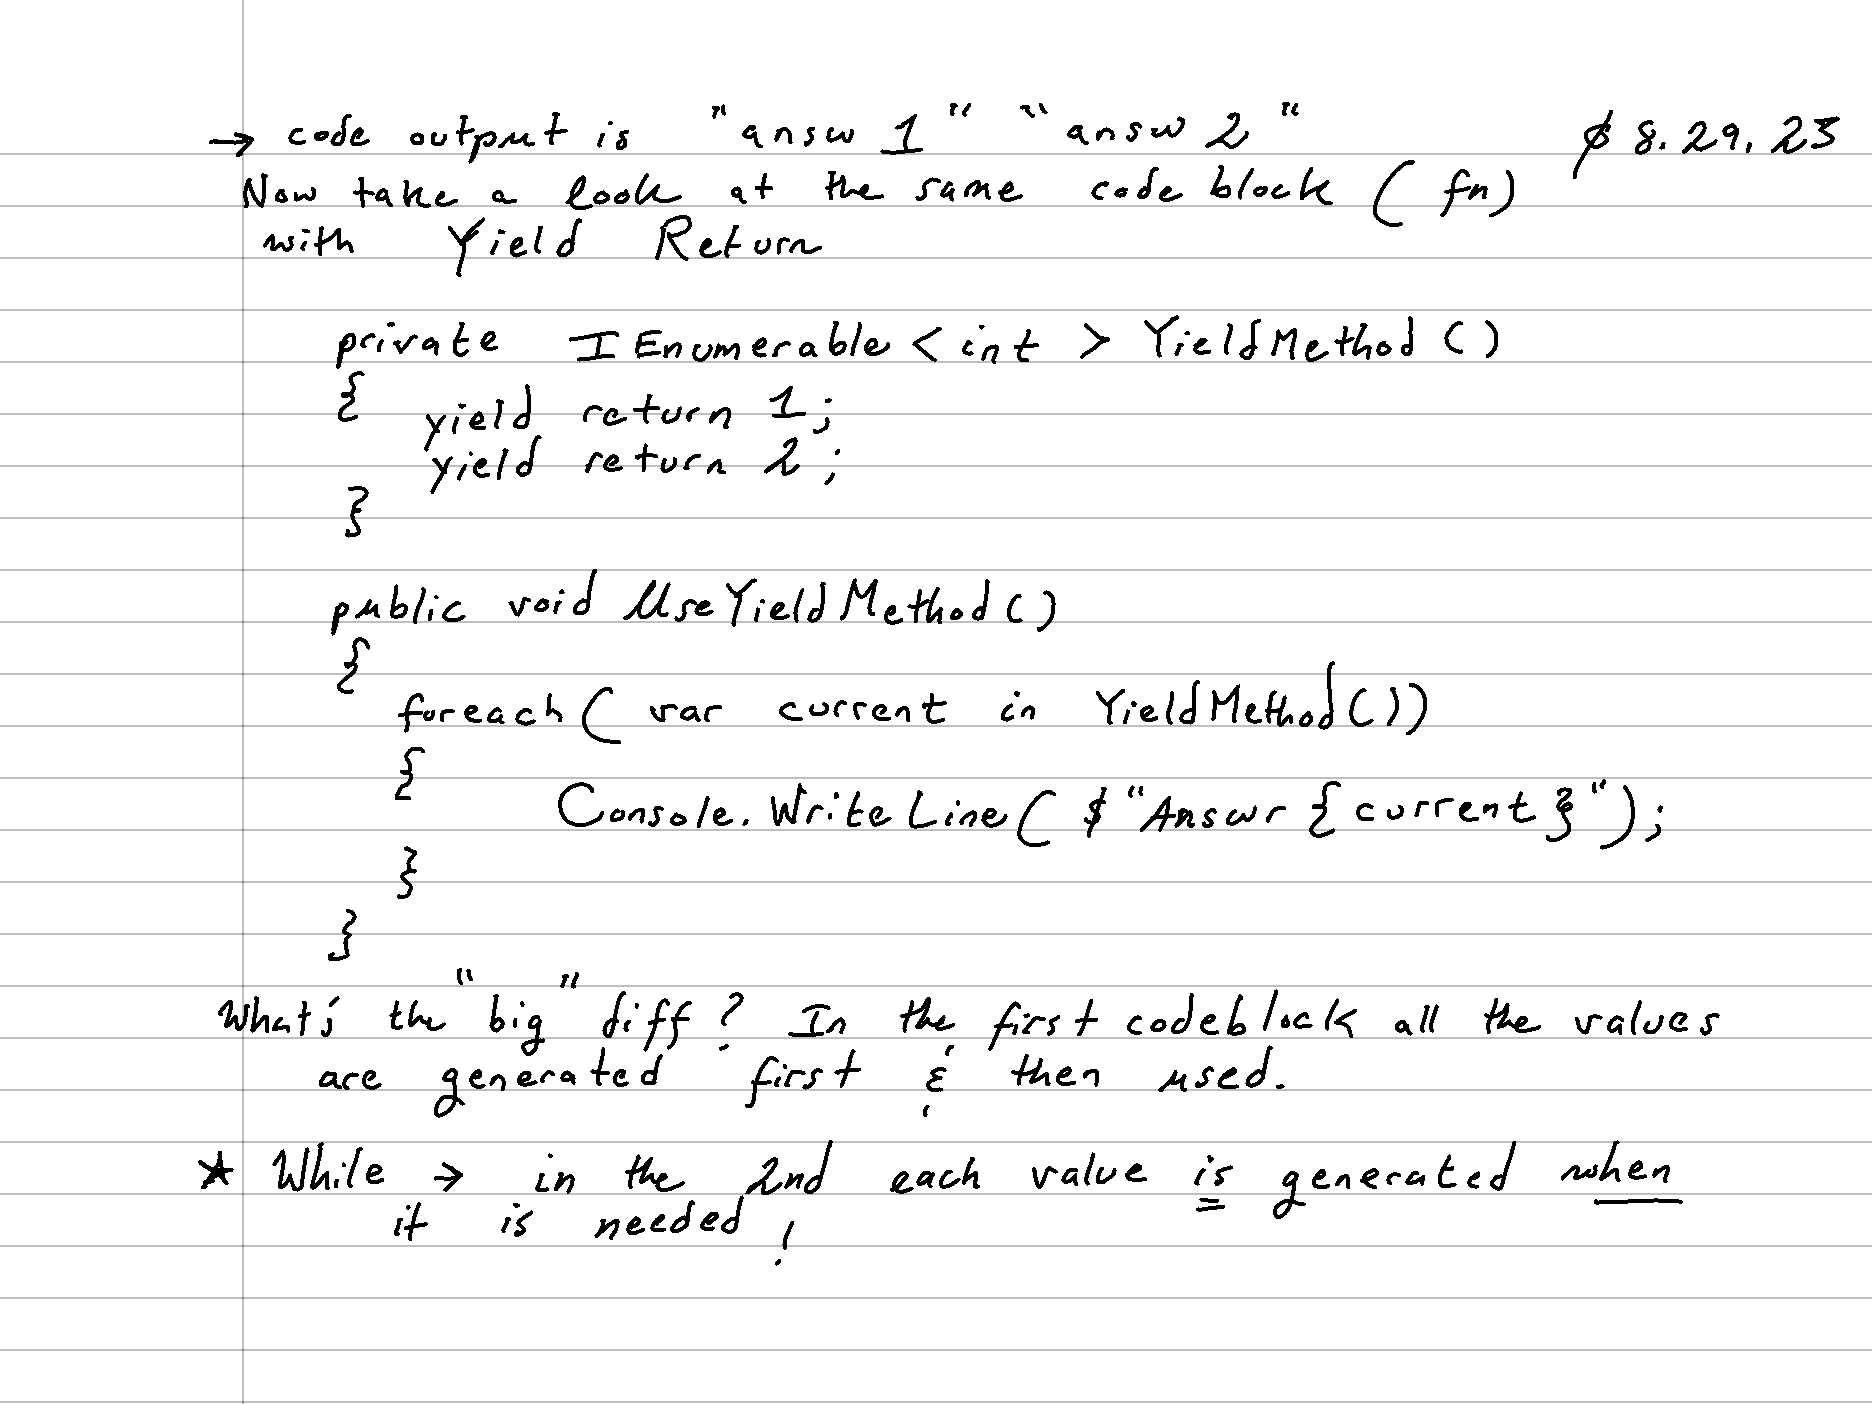 → code output is "answ 1" "answ 2" $ 8.29.23
Now take a look at the same code block (fn)
with Yield Return
private IEnumerable<int> YieldMethod()
{ yield return 1;
yield return 2;
}
public void UseYieldMethod()
{
foreach( var current in YieldMethod())
{
Console.WriteLine( $"Answr {current}");
}
}
What's the "big" diff? In the first codeblock all the values
are generated first & then used.
★ While → in the 2nd each value is generated when
it is needed!